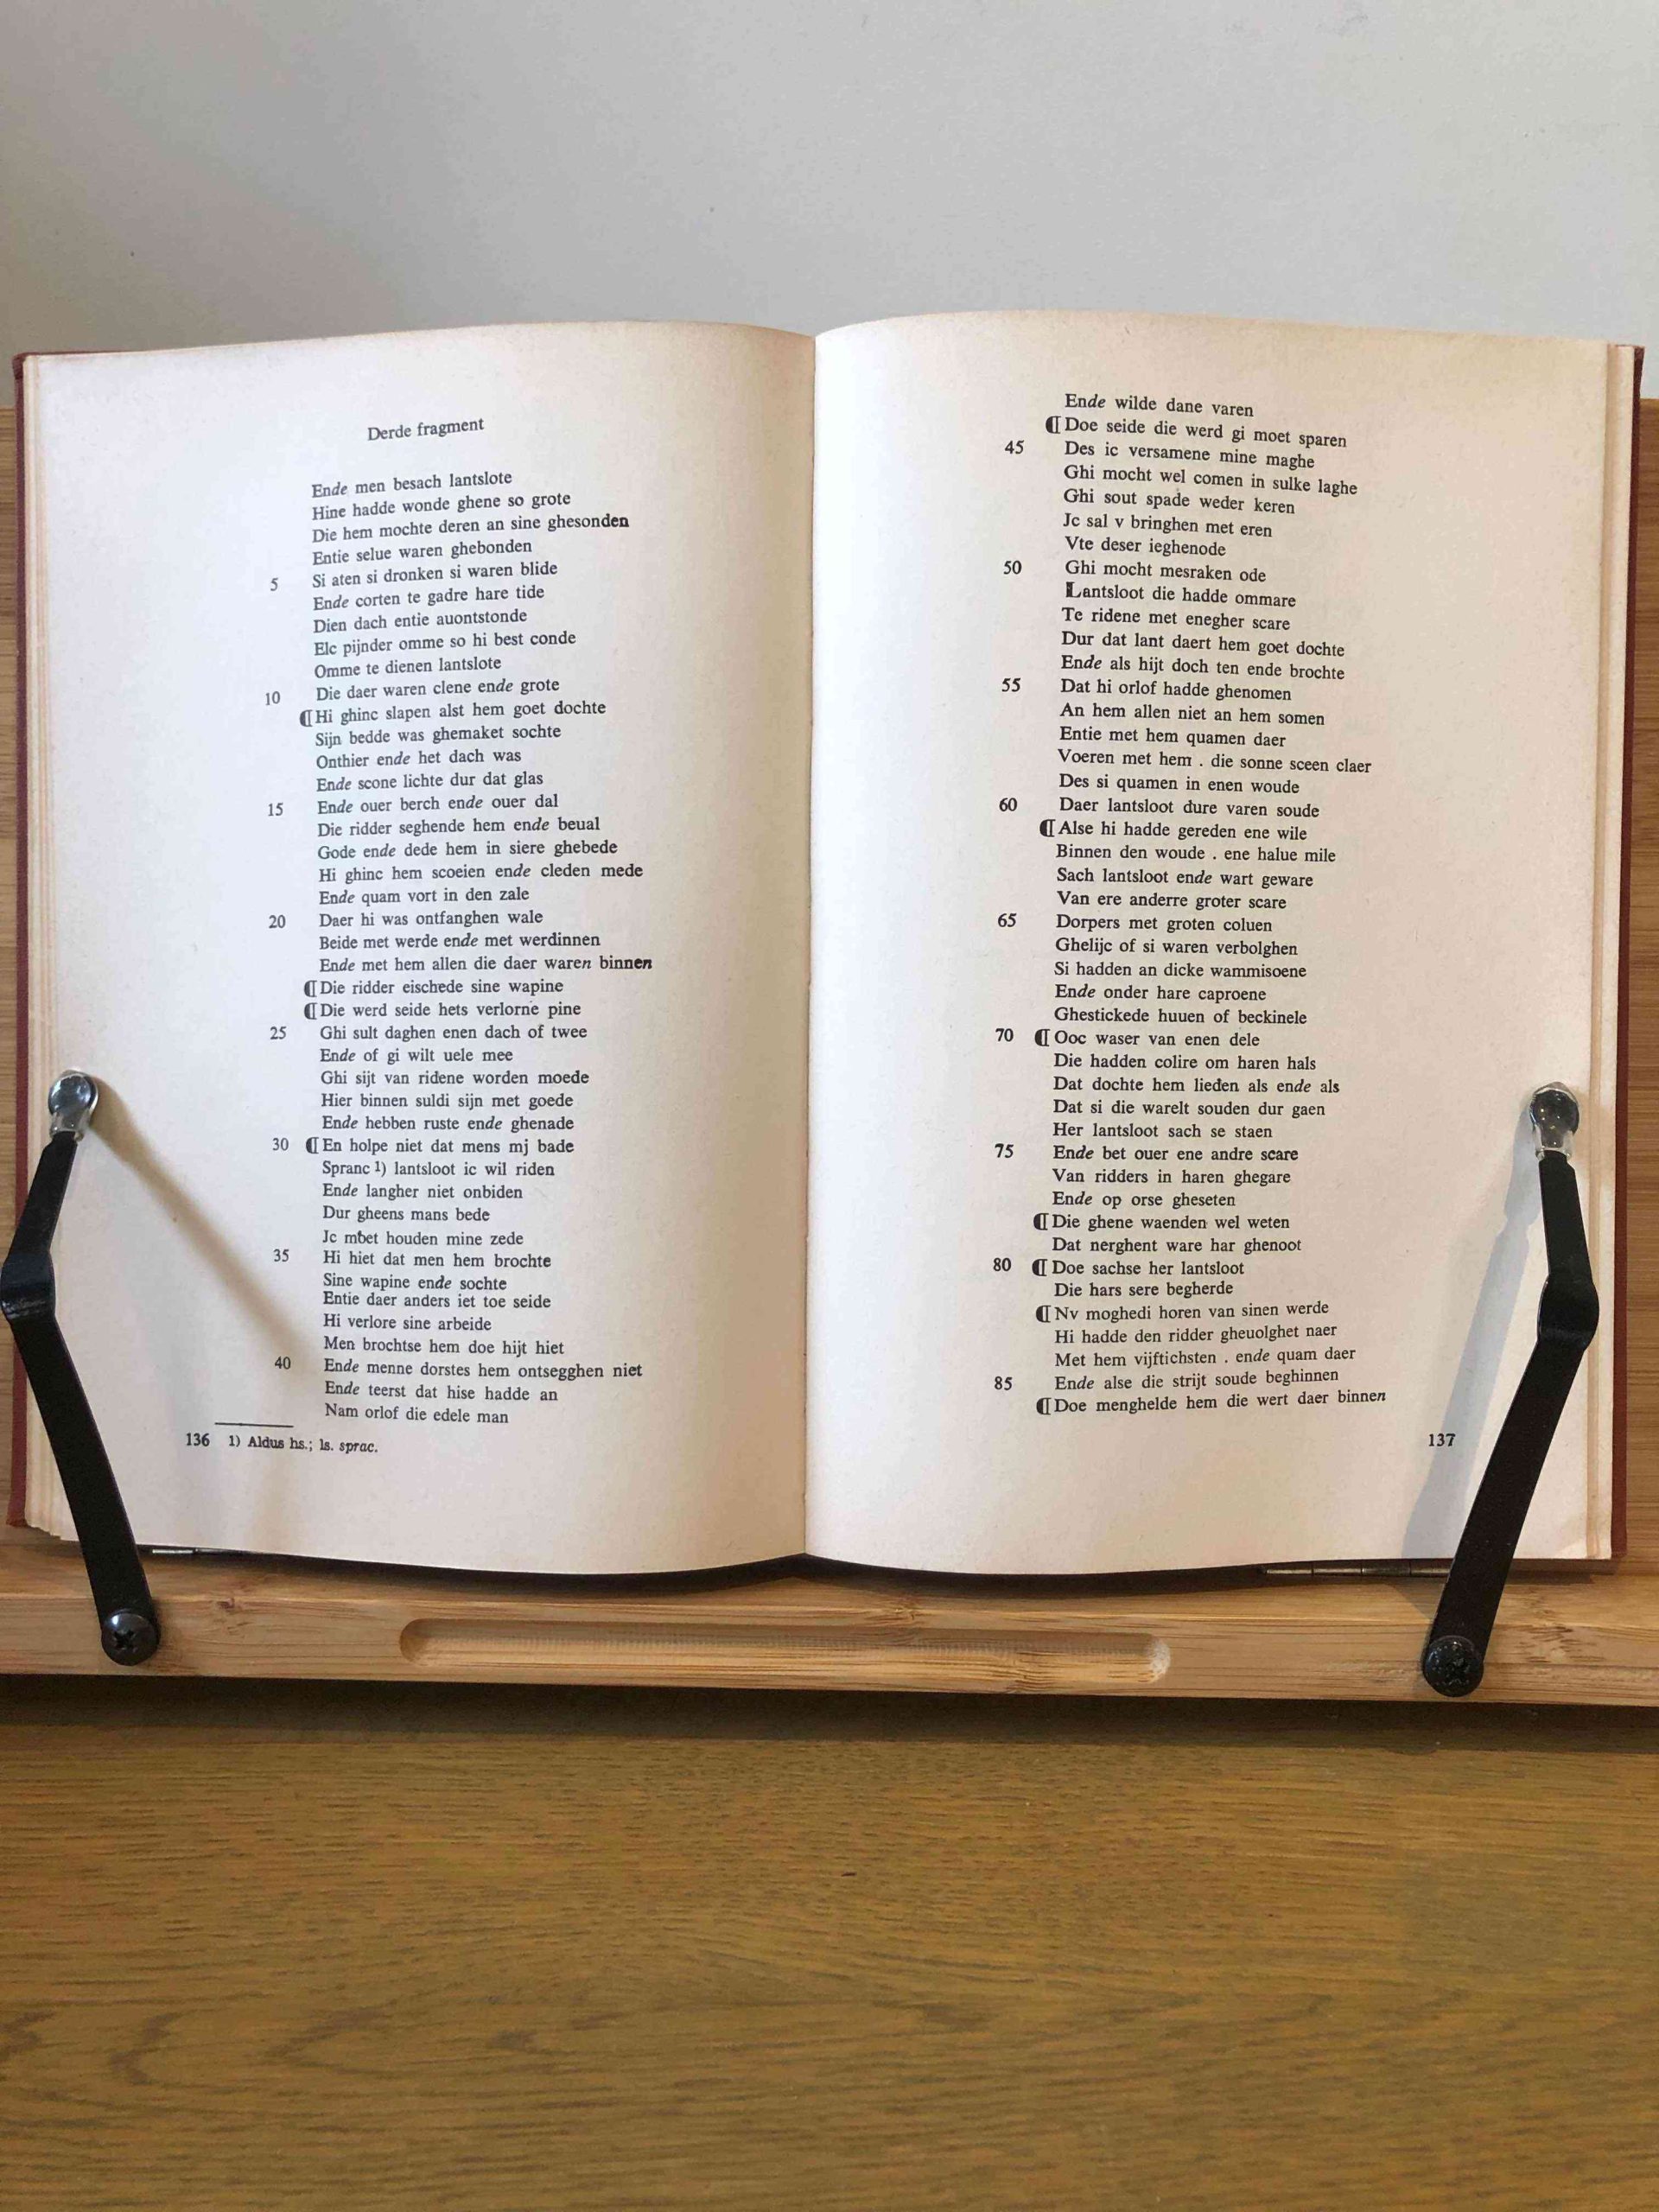 Derde fragment
Ende men besach lantslote
Hine hadde wonde ghene so grote
Die hem mochte deren an sine ghesonden
Entie selue waren ghebonden
5 Si aten si dronken si waren blide
Ende corten te gadre hare tide
Dien dach entie auontstonde
Elc pijnder omme so hi best conde
Omme te dienen lantslote
10 Die daer waren clene ende grote
⁋ Hi ghinc slapen alst hem goet dochte
Sijn bedde was ghemaket sochte
Onthier ende het dach was
Ende scone lichte dur dat glas
15 Ende ouer berch ende ouer dal
Die ridder seghende hem ende beual
Gode ende dede hem in siere ghebede
Hi ghinc hem scoeien ende cleden mede
Ende quam vort in den zale
20 Daer hi was ontfanghen wale
Beide met werde ende met werdinnen
Ende met hem allen die daer waren binnen
⁋ Die ridder eischede sine wapine
⁋ Die werd seide hets verlorne pine
25 Ghi sult daghen enen dach of twee
Ende of gi wilt uele mee
Ghi sijt van ridene worden moede
Hier binnen suldi sijn met goede
Ende hebben ruste ende ghenade
30 ⁋ En holpe niet dat mens mj bade
Spranc 1) lantsloot ic wil riden
Ende langher niet onbiden
Dur gheens mans bede
Jc moet houden mine zede
35 Hi hiet dat men hem brochte
Sine wapine ende sochte
Entie daer anders iet toe seide
Hi verlore sine arbeide
Men brochtse hem doe hijt hiet
40 Ende menne dorstes hem ontsegghen niet
Ende teerst dat hise hadde an
Nam orlof die edele man
136 1) Aldus hs.; ls. sprac.
Ende wilde dane varen
⁋ Doe seide die werd gi moet sparen
45 Des ic versamene mine maghe
Ghi mocht wel comen in sulke laghe
Ghi sout spade weder keren
Jc sal v bringhen met eren
Vte deser ieghenode
50 Ghi mocht mesraken ode
Lantsloot die hadde ommare
Te ridene met enegher scare
Dur dat lant daert hem goet dochte
Ende als hijt doch ten ende brochte
55 Dat hi orlof hadde ghenomen
An hem allen niet an hem somen
Entie met hem quamen daer
Voeren met hem . die sonne sceen claer
Des si quamen in enen woude
60 Daer lantsloot dure varen soude
⁋ Alse hi hadde gereden ene wile
Binnen den woude . ene halue mile
Sach lantsloot ende wart geware
Van ere anderre groter scare
65 Dorpers met groten coluen
Ghelijc of si waren verbolghen
Si hadden an dicke wammisoene
Ende onder hare caproene
Ghestickede huuen of beckinele
70 ⁋ Ooc waser van enen dele
Die hadden colire om haren hals
Dat dochte hem lieden als ende als
Dat si die warelt souden dur gaen
Her lantsloot sach se staen
75 Ende bet ouer ene andre scare
Van ridders in haren ghegare
Ende op orse gheseten
⁋ Die ghene waenden wel weten
Dat nerghent ware har ghenoot
80 ⁋ Doe sachse her lantsloot
Die hars sere begherde
⁋ Nv moghedi horen van sinen werde
Hi hadde den ridder gheuolghet naer
Met hem vijftichsten . ende quam daer
85 Ende alse die strijt soude beghinnen
⁋ Doe menghelde hem die wert daer binnen
137